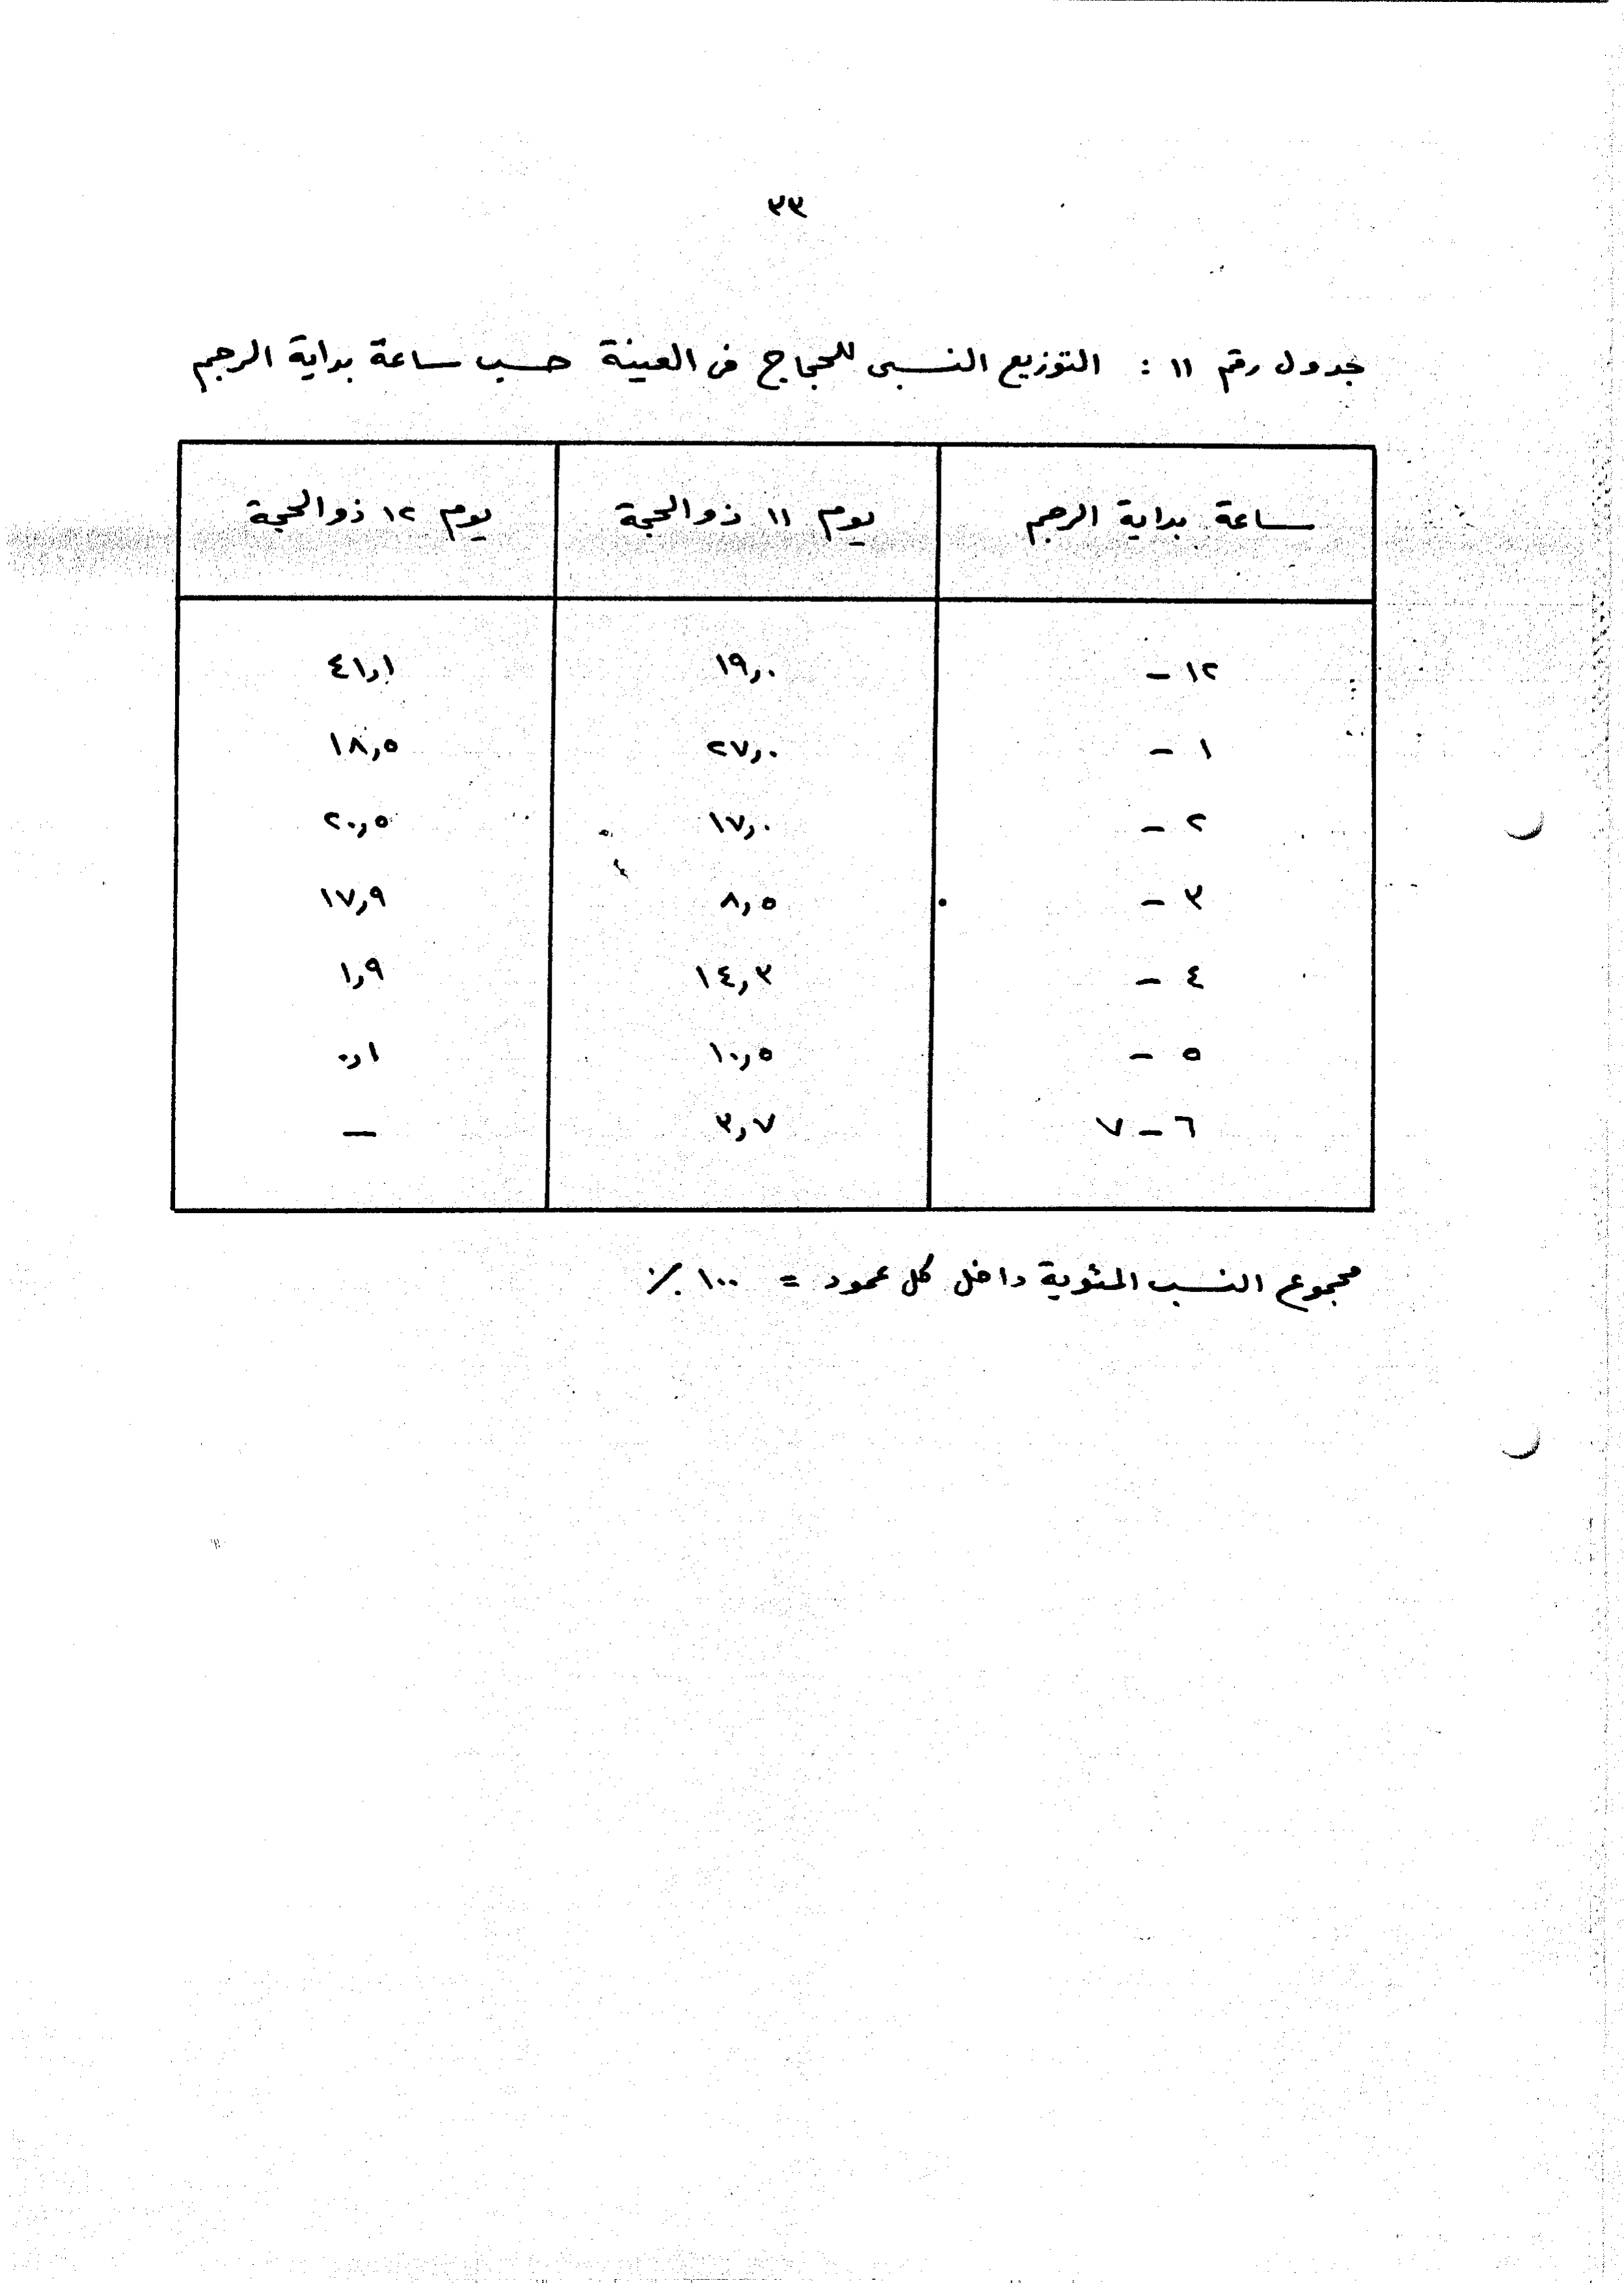 ٣٣
جدول رقم ١١ : التوزيع النسبى للحجاج فى العينة حسب ساعة بداية الرجم
ساعة بداية الرجم يوم ١١ ذو الحجة يوم ١٢ ذو الحجة
١٢ – ١٩,٠ ٤١,١
١ – ٢٧,٠ ١٨,٥
٢ – ١٧,٠ ٢٠,٥
٣ – ٨,٥ ١٧,٩
٤ – ١٤,٣ ١,٩
٥ – ١٠,٥ ٠,١
٦ – ٧ ٣,٧ —
مجموع النسب المئوية داخل كل عمود = ١٠٠ ٪